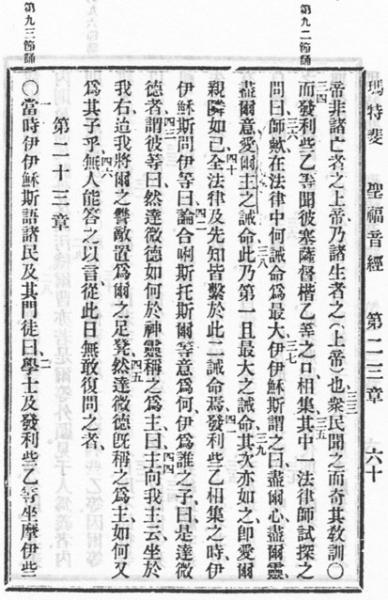 第九二節誦
第九三節誦
瑪特斐 聖福音經 第二三章 六十
帝非諸亡者之上帝乃諸生者之(上帝)也三三衆民聞之而奇其敎訓〇
三四而發利些乙等聞彼塞薩督楷乙等之口相集其中、三五法律師試探之
問曰三六師歟在法律中何誡命爲最大、三七伊伊穌斯謂之曰盡爾心盡爾靈
盡爾意愛爾主之誡命、三八此乃第一且最大之誡命、三九其次亦如之卽愛爾
親隣如己、四十全法律及先知皆繫於此二誡命焉、四一發利些乙相集之時伊
伊穌斯問伊等曰、四二論合唎斯托斯爾等意爲何伊爲誰之子曰是達微
德者、四三謂彼等曰然達微德如何於神靈稱之爲主曰、四四主向我主云坐於
我右迨我將爾之讐敵置爲爾之足凳、四五然達微德旣稱之爲主如何又
爲其子乎、四六無人能答之以言從此日無敢復問之者、
第二十三章
一〇當時伊伊穌斯語諸民及其門徒曰、二學士及發利些乙等坐摩伊些